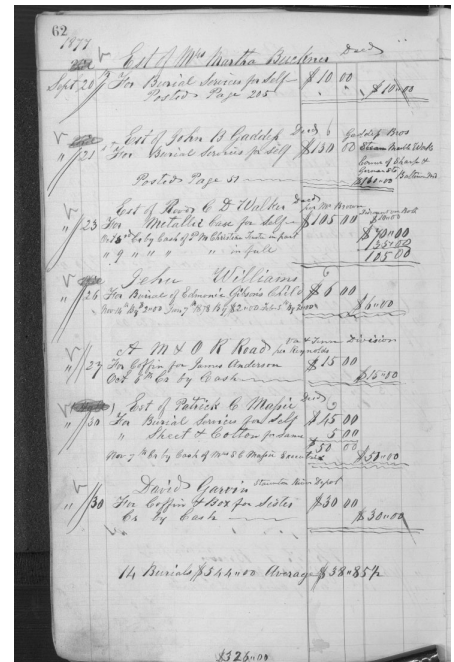 62
1877
Est of Mrs Martha Buckner Decd
Sept 20 For Burial Services for Self $10 00
Posted Page 205 " " $10"00
Est of John B Gaddess Decd Gaddess Bros
" 21 For Burial Services for self $130 00 Steam Marble Works
corner of Sharp &
Baltimore Md
Posted Page 51
Est of Revd C D Walker Decd per Mr Brown
" 23 For Metallic Case for Self $105 00
Cr by Cash of P M Christian in part $90"00
" 9 " " " " in full 135"00
105 00
John Williams
" 26 For Burial of Edmonia Gibson's Child $6 00
Nov 14th By $2"00 Jany 7th 1878 By $2"00 Feb 5th By 2"00 $6"00
A M & O R Road per Reynolds Va & Tenn Division
" 27 For Coffin for James Anderson $15 00
Oct 8th Cr by Cash $15"00
Est of Patrick C Massie Decd
" 30 For Burial Services for Self $45 00
" Sheet & Cotton for same 5 00
$50 00
Nov 7th Cr by Cash of Mrs S C Massie $50"00
David Garvin Staunton River Depot
" 30 For Coffin & Box for Sister $30 00
Cr by Cash $30"00
14 Burials $544"00 Average $38"85½
$326"00